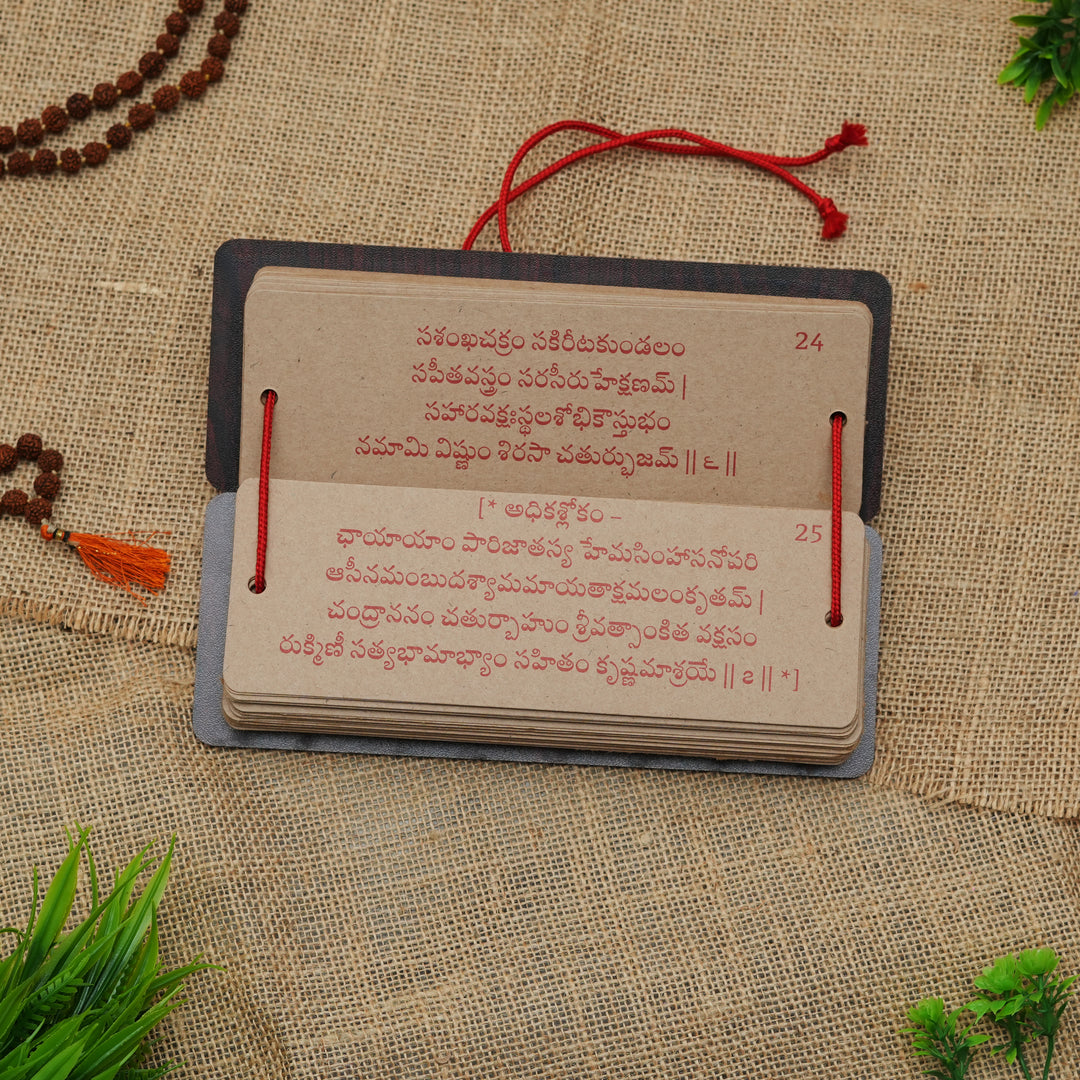 24
సశంఖచక్రం సకిరీటకుండలం
సపీతవస్త్రం సరసీరుహేక్షణమ్ |
సహారవక్షఃస్థలశోభికౌస్తుభం
నమామి విష్ణుం శిరసా చతుర్భుజమ్ || ౬ ||
25
[* అధికశ్లోకం –
ఛాయాయాం పారిజాతస్య హేమసింహాసనోపరి
ఆసీనమంబుదశ్యామమాయతాక్షమలంకృతమ్ |
చంద్రాననం చతుర్బాహుం శ్రీవత్సాంకిత వక్షసం
రుక్మిణీ సత్యభామాభ్యాం సహితం కృష్ణమాశ్రయే || ౭ || *]